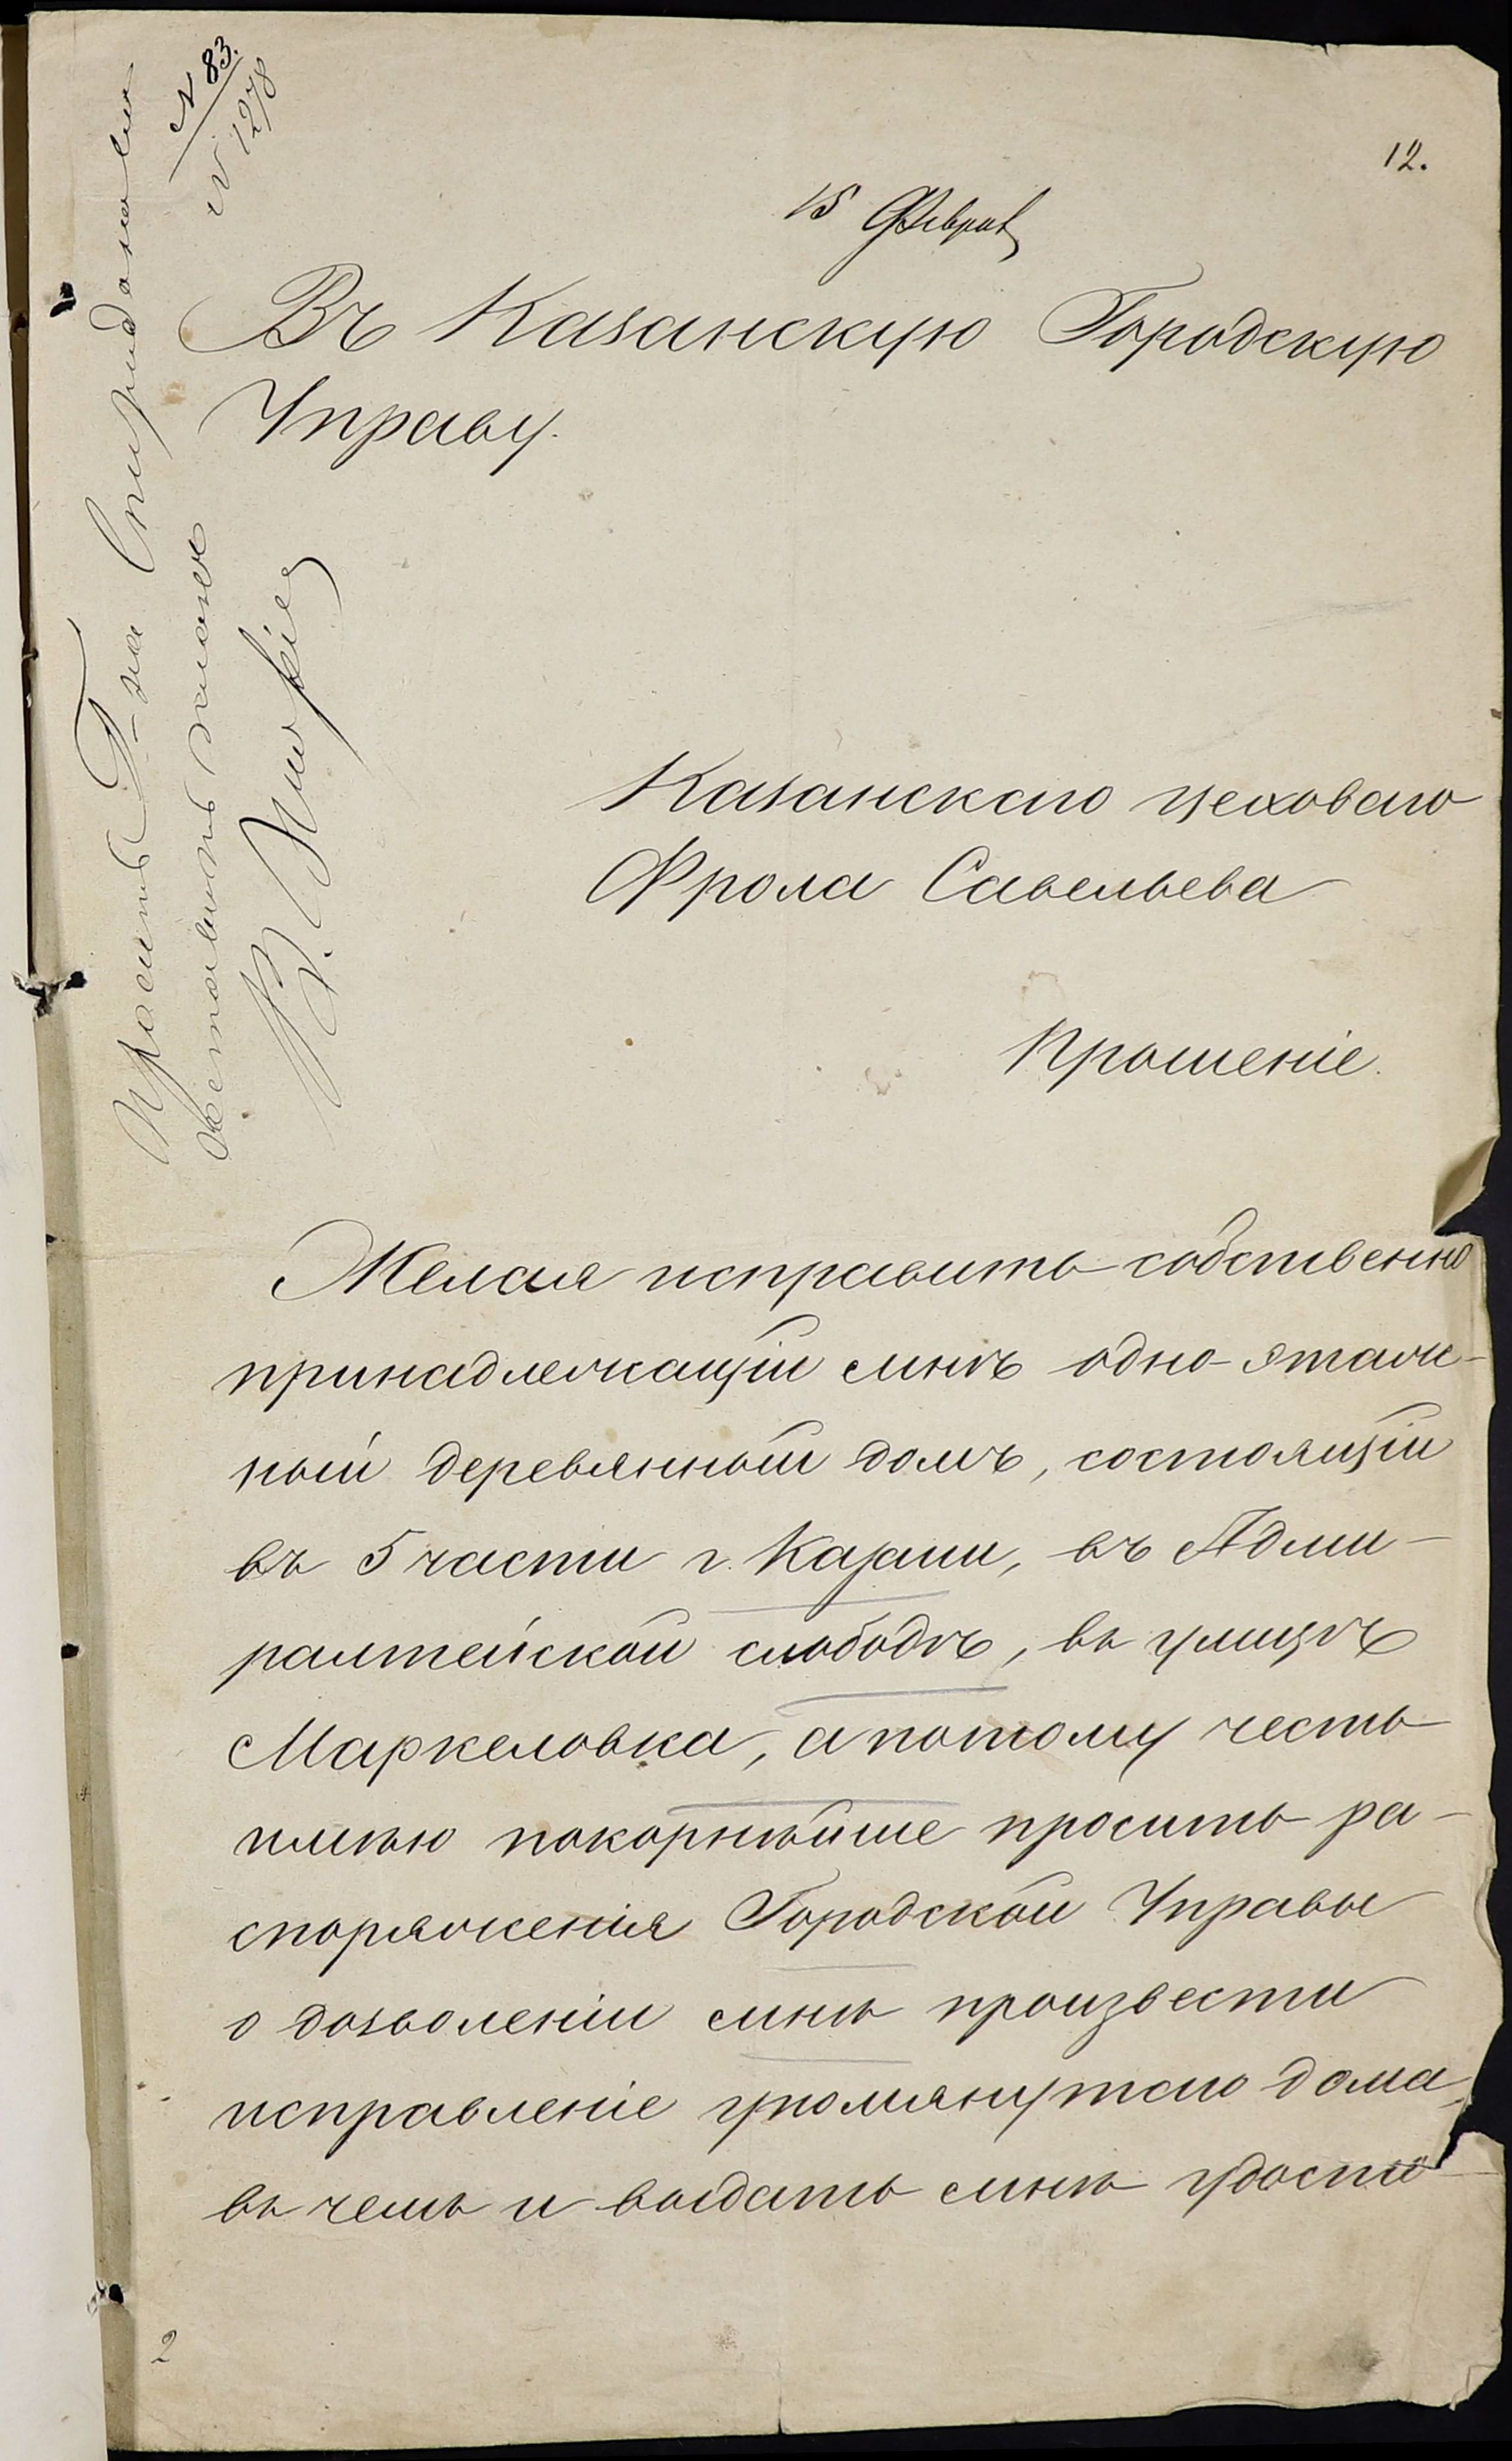 N 83.
N 1278
12.
15 Феврал
Въ Казанскую Городскую
Управу.
Казанскаго цеховаго
Фрола Савельева
Прошеніе.
Желая исправить собственно
принадлежащій мнѣ одно-этаж-
ный деревянный домъ, состоящій
въ 5 части г. Казани, въ Адми-
ралтейской слободѣ, въ улицѣ
Маркеловка, а потому честь
имѣю покорнѣйше просить ра-
споряженія Городской Управы
о дозволеніи мнѣ произвести
исправленіе упомянутаго дома,
въ чемъ и выдать мнѣ удосто
Просить Г-на Спиридонова
составить
2